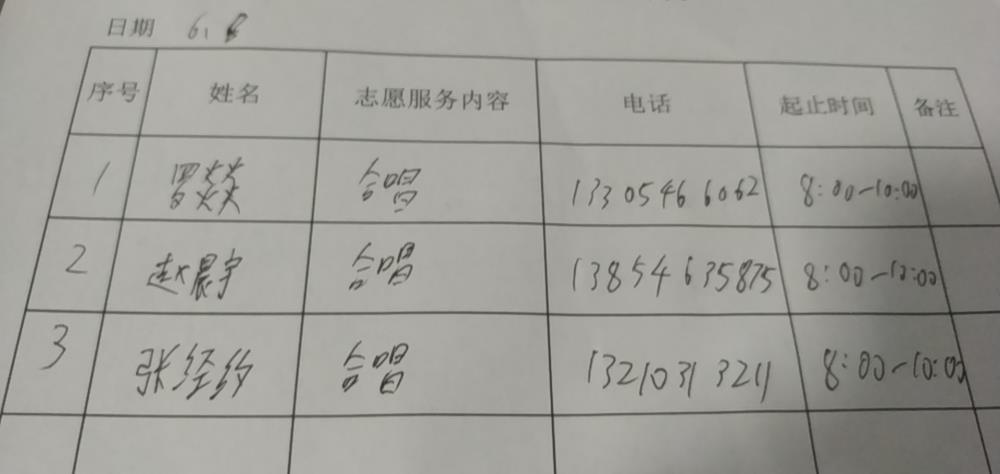 日期 6.8
序号 姓名 志愿服务内容 电话 起止时间 备注
1 合唱 13305466062 8:00-10:00
2 赵晨宇 合唱 13854635875 8:00-10:00
3 张经纬 合唱 13210313211 8:00-10:00